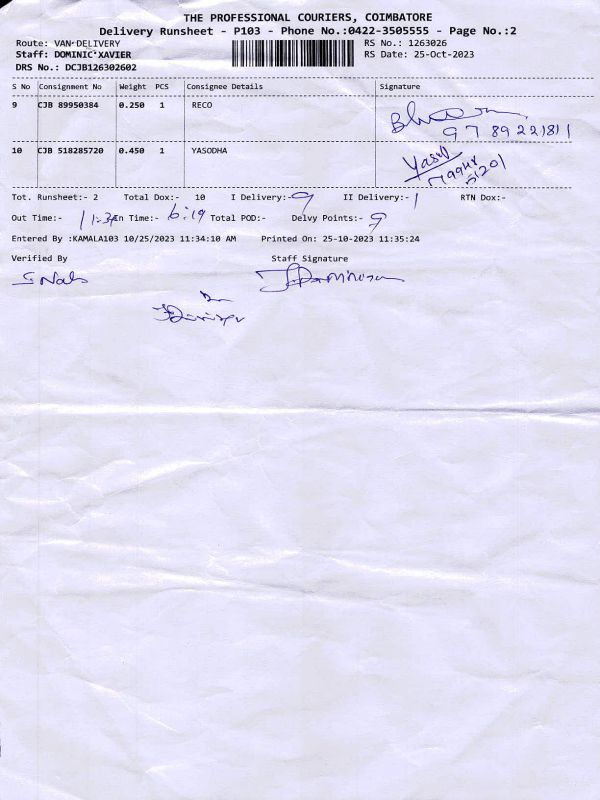 THE PROFESSIONAL COURIERS, COIMBATORE
Delivery Runsheet - P103 - Phone No.:0422-3505555 - Page No.:2
Route: VAN-DELIVERY RS No.: 1263026
Staff: DOMINIC XAVIER RS Date: 25-Oct-2023
DRS No.: DCJB126302602
S No Consignment No Weight PCS Consignee Details Signature
9 CJB 89950384 0.250 1 RECO
9789221811
10 CJB 518285720 0.450 1 YASODHA
Tot. Runsheet:- 2 Total Dox:- 10 I Delivery:- 9 II Delivery:- 1 RTN Dox:-
Out Time:- 11:34 In Time:- 6:19 Total POD:- Delvy Points:- 9
Entered By :KAMALA103 10/25/2023 11:34:10 AM Printed On: 25-10-2023 11:35:24
Verified By Staff Signature